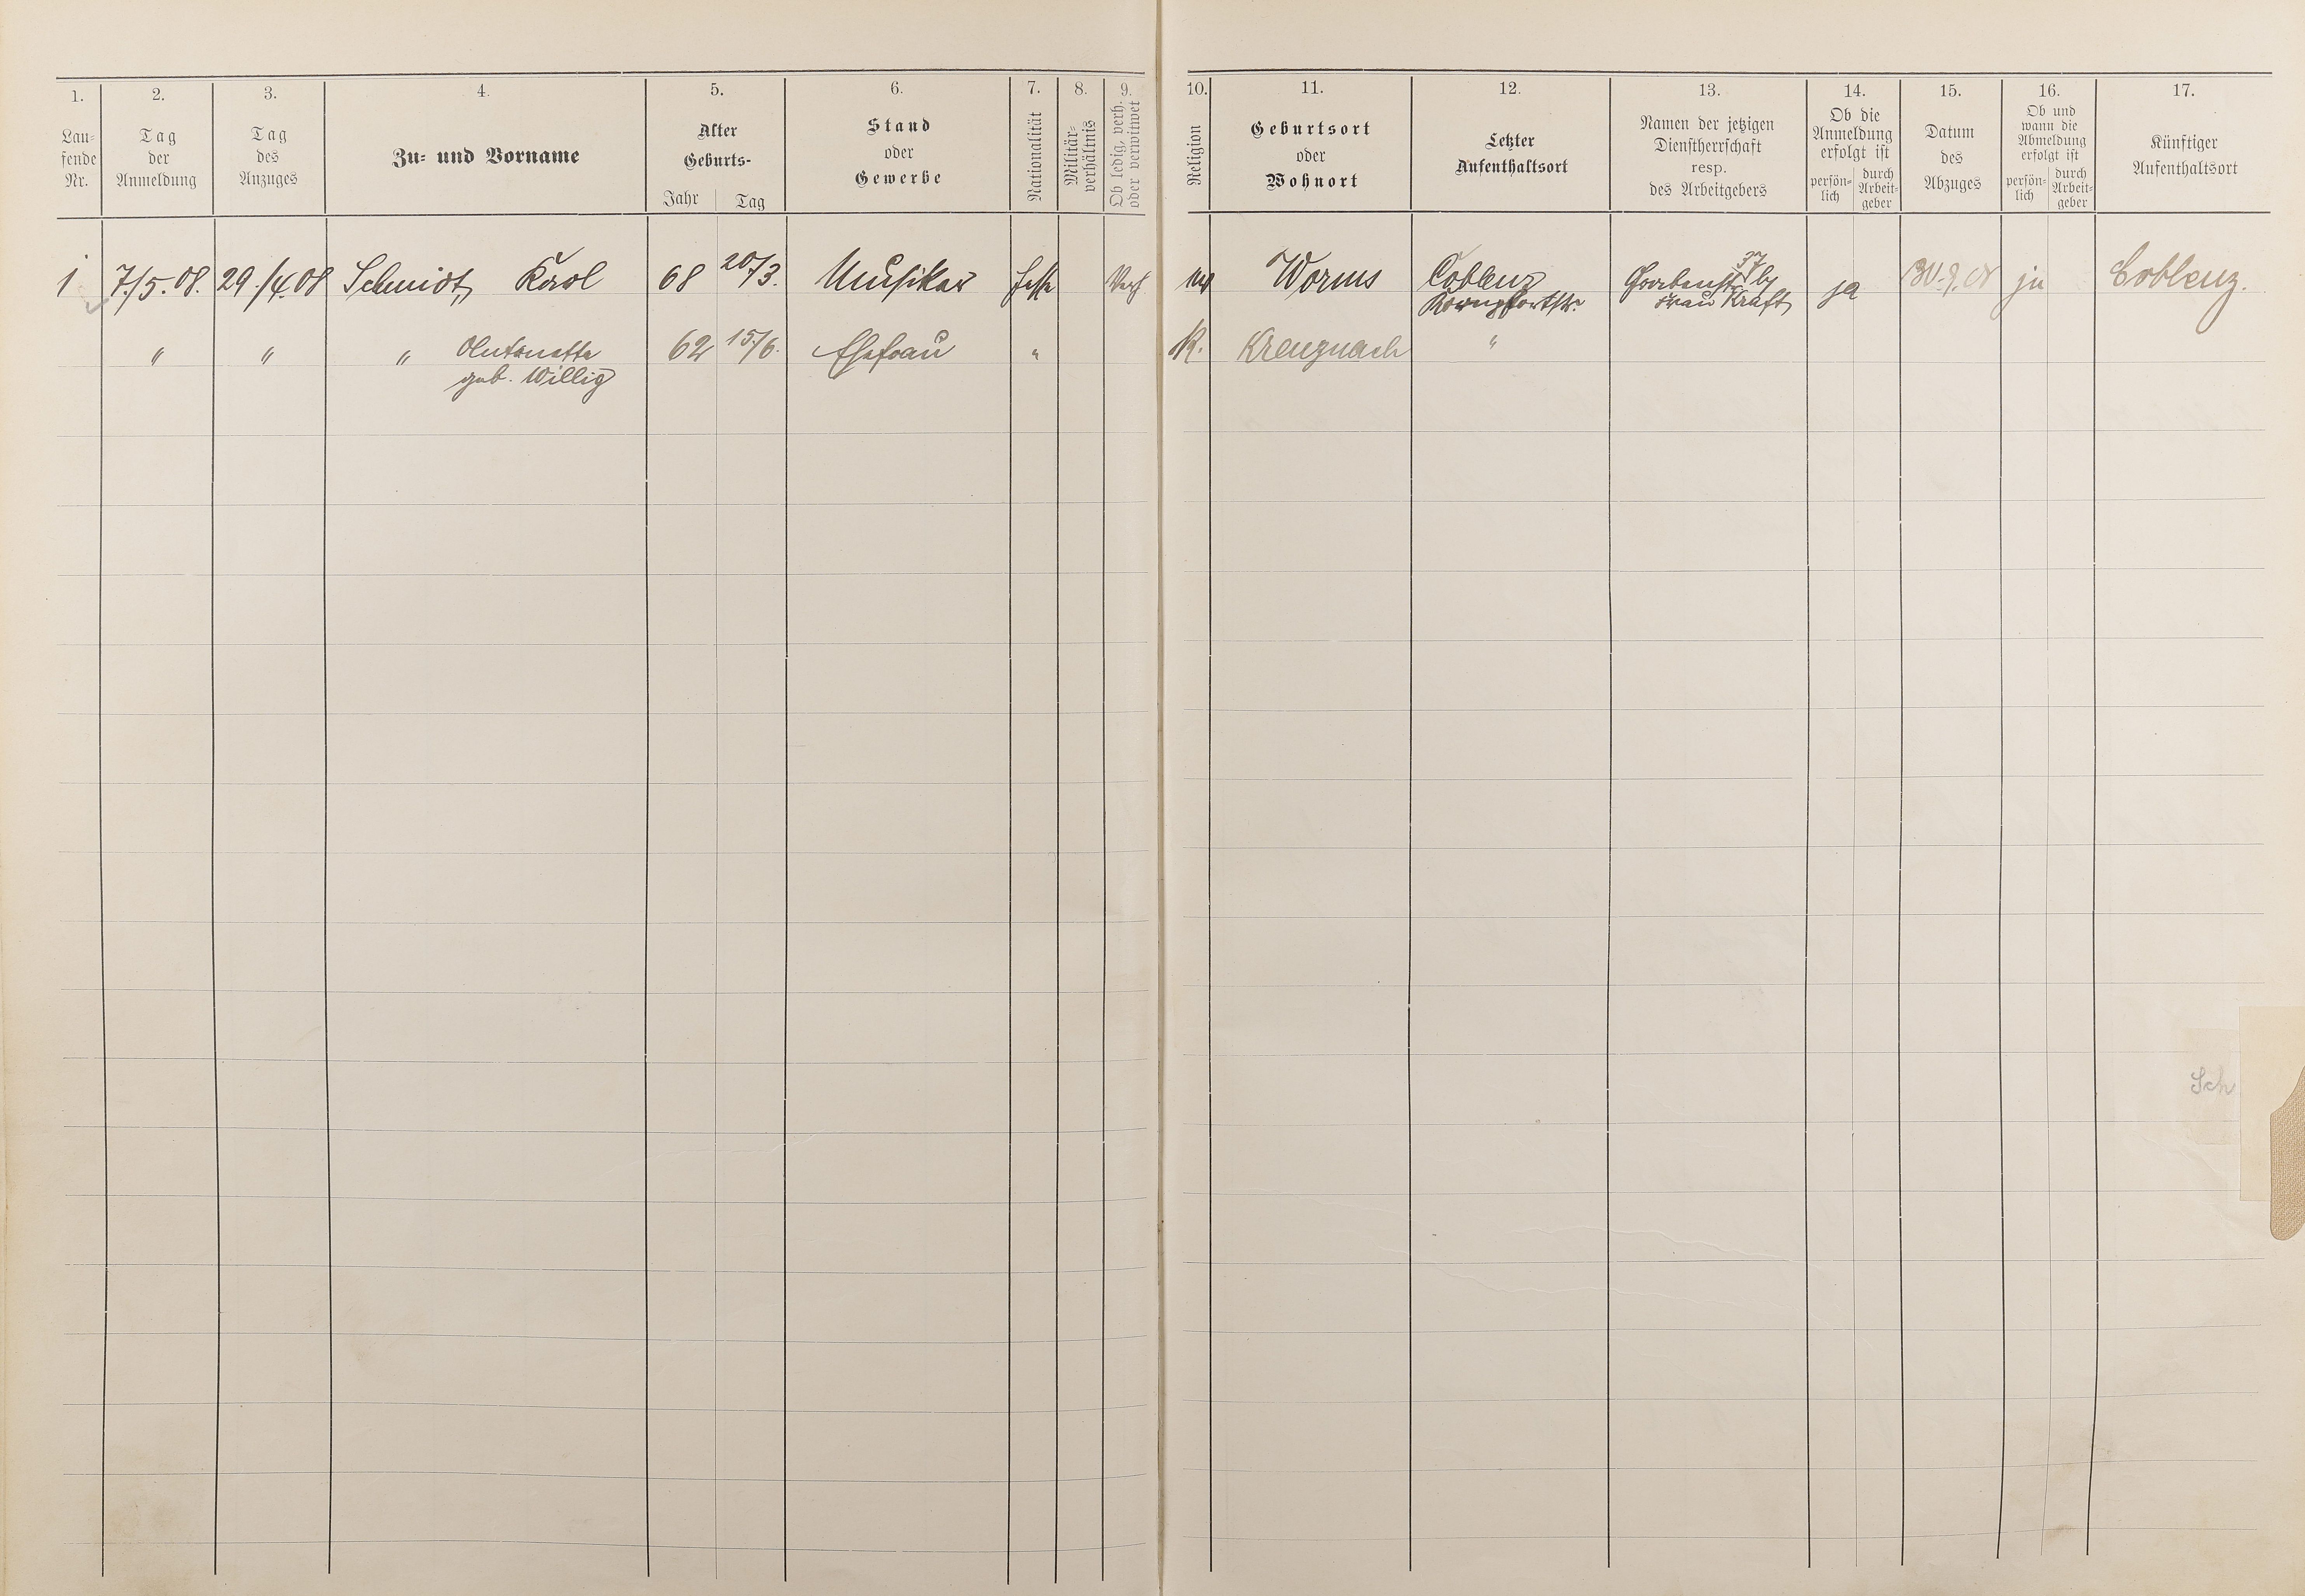 1. 2. 3. 4. 5. 6. 7. 8. 9. 10. 11. 12. 13. 14. 15. 16. 17.
Lau-
fende
Nr.
Tag
der
Anmeldung
Tag
des
Anzuges
Zu- und Vorname
Alter
Geburts-
Jahr Tag
Stand
oder
Gewerbe
Nationalität
Militär-
verhältnis
Ob ledig, verh.
oder verwitwet
Religion
Geburtsort
oder
Wohnort
Letzter
Aufenthaltsort
Namen der jetzigen
Dienstherrschaft
resp.
des Arbeitgebers
Ob die
Anmeldung
erfolgt ist
persön-
lich
durch
Arbeit-
geber
Datum
des
Abzuges
Ob und
wann die
Abmeldung
erfolgt ist
persön-
lich
durch
Arbeit-
geber
Künftiger
Aufenthaltsort
1 7./5.08. 29./4.08 Schmidt, Karl 68 20/3. Musiker Hesse Verh. Worms Coblenz 37 ja ja Coblenz.
Kornpfortstr. Frau Kraft
" " " Antonette 62 15/6. Ehefrau " K. Kreuznach "
geb. Willig
Sch